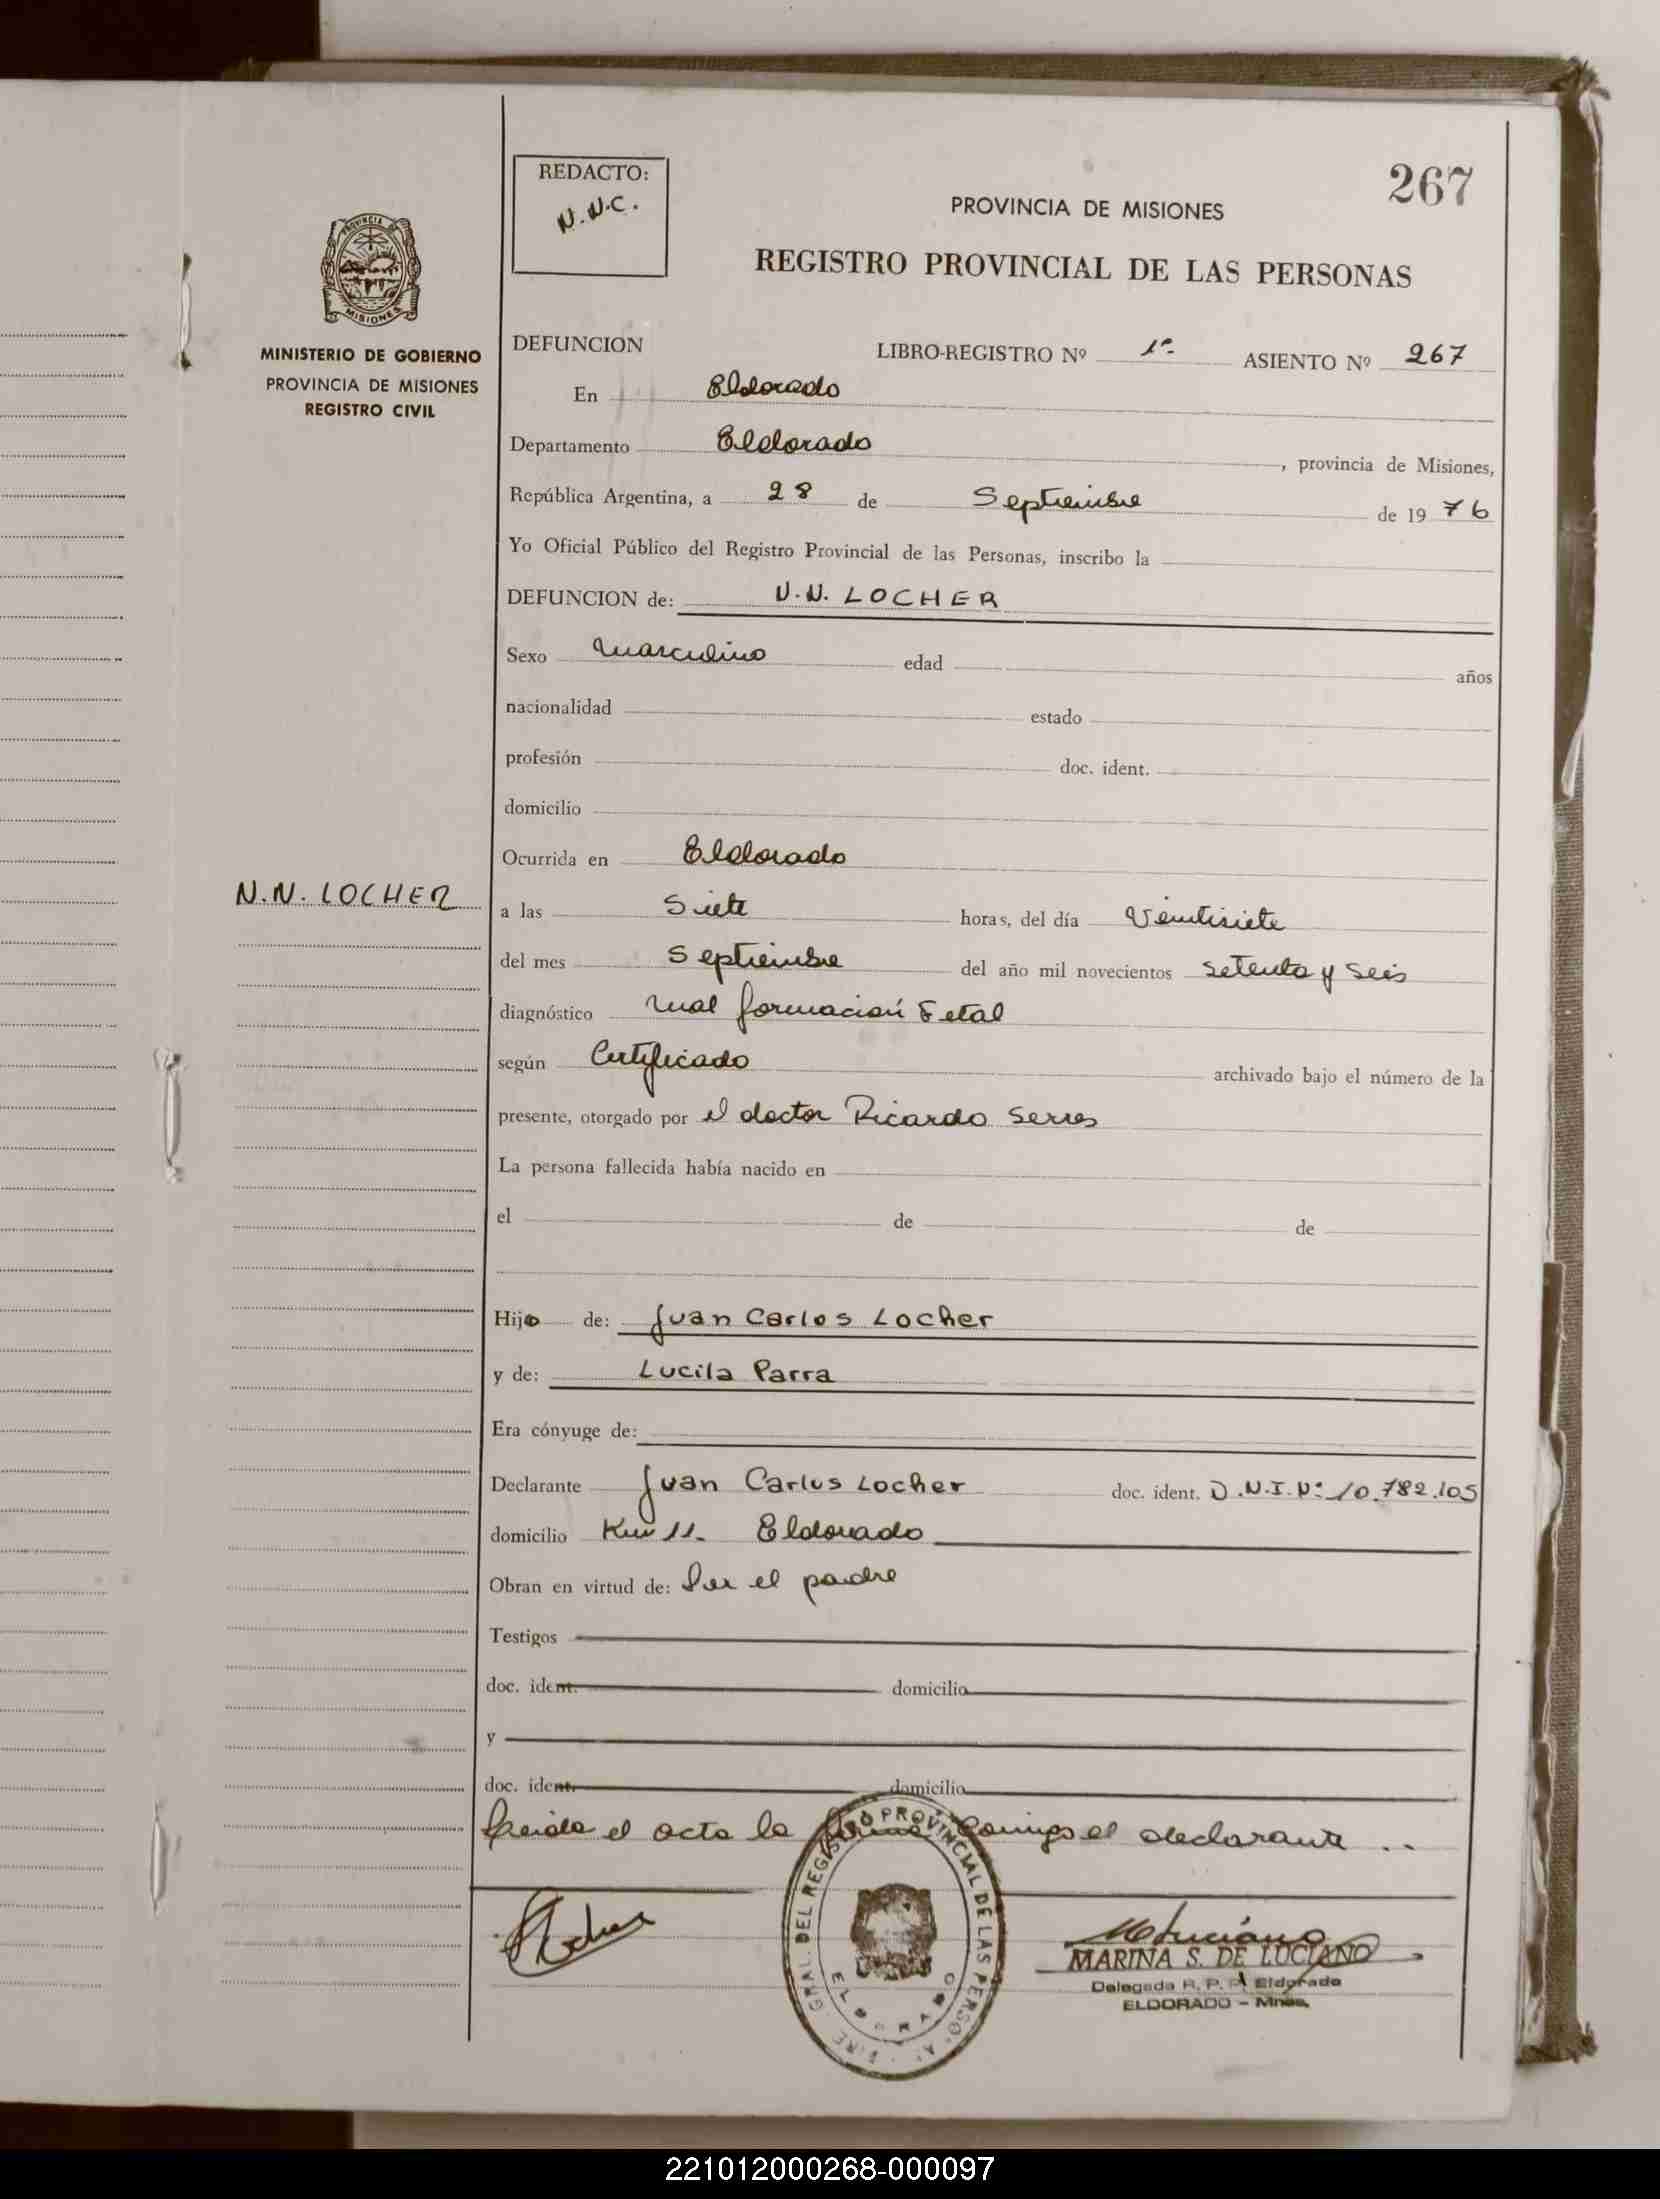 REDACTO:
N.N.C.
267
PROVINCIA DE MISIONES
REGISTRO PROVINCIAL DE LAS PERSONAS
PROVINCIA DE
MISIONES
MINISTERIO DE GOBIERNO
PROVINCIA DE MISIONES
REGISTRO CIVIL
N.N. LOCHER
DEFUNCION LIBRO-REGISTRO Nº 1º- ASIENTO Nº 267
En Eldorado
Departamento Eldorado, provincia de Misiones,
República Argentina, a 28 de Septiembre de 1976
Yo Oficial Público del Registro Provincial de las Personas, inscribo la
DEFUNCION de: N.N. LOCHER
Sexo Masculino edad años
nacionalidad estado
profesión doc. ident.
domicilio
Ocurrida en Eldorado
a las Siete horas, del día Veintisiete
del mes Septiembre del año mil novecientos setenta y seis
diagnóstico mal formación Fetal
según Certificado archivado bajo el número de la
presente, otorgado por el doctor Ricardo Serres
La persona fallecida había nacido en
el de de
Hijo de: Juan Carlos Locher
y de: Lucila Parra
Era cónyuge de:
Declarante Juan Carlos Locher doc. ident. D.N.I.Nº 10.782.105
domicilio Km 11- Eldorado
Obran en virtud de: Ser el padre
Testigos
doc. ident. domicilio
y
doc. ident. domicilio
Leida el acta la firma conmigo el declarante ..
GRAL. DEL REGISTRO PROVINCIAL DE LAS PERSO
ELDORADO
MARINA S. DE LUCIANO
Delegada R. P. P. Eldorado
ELDORADO - Mnes.
221012000268-000097